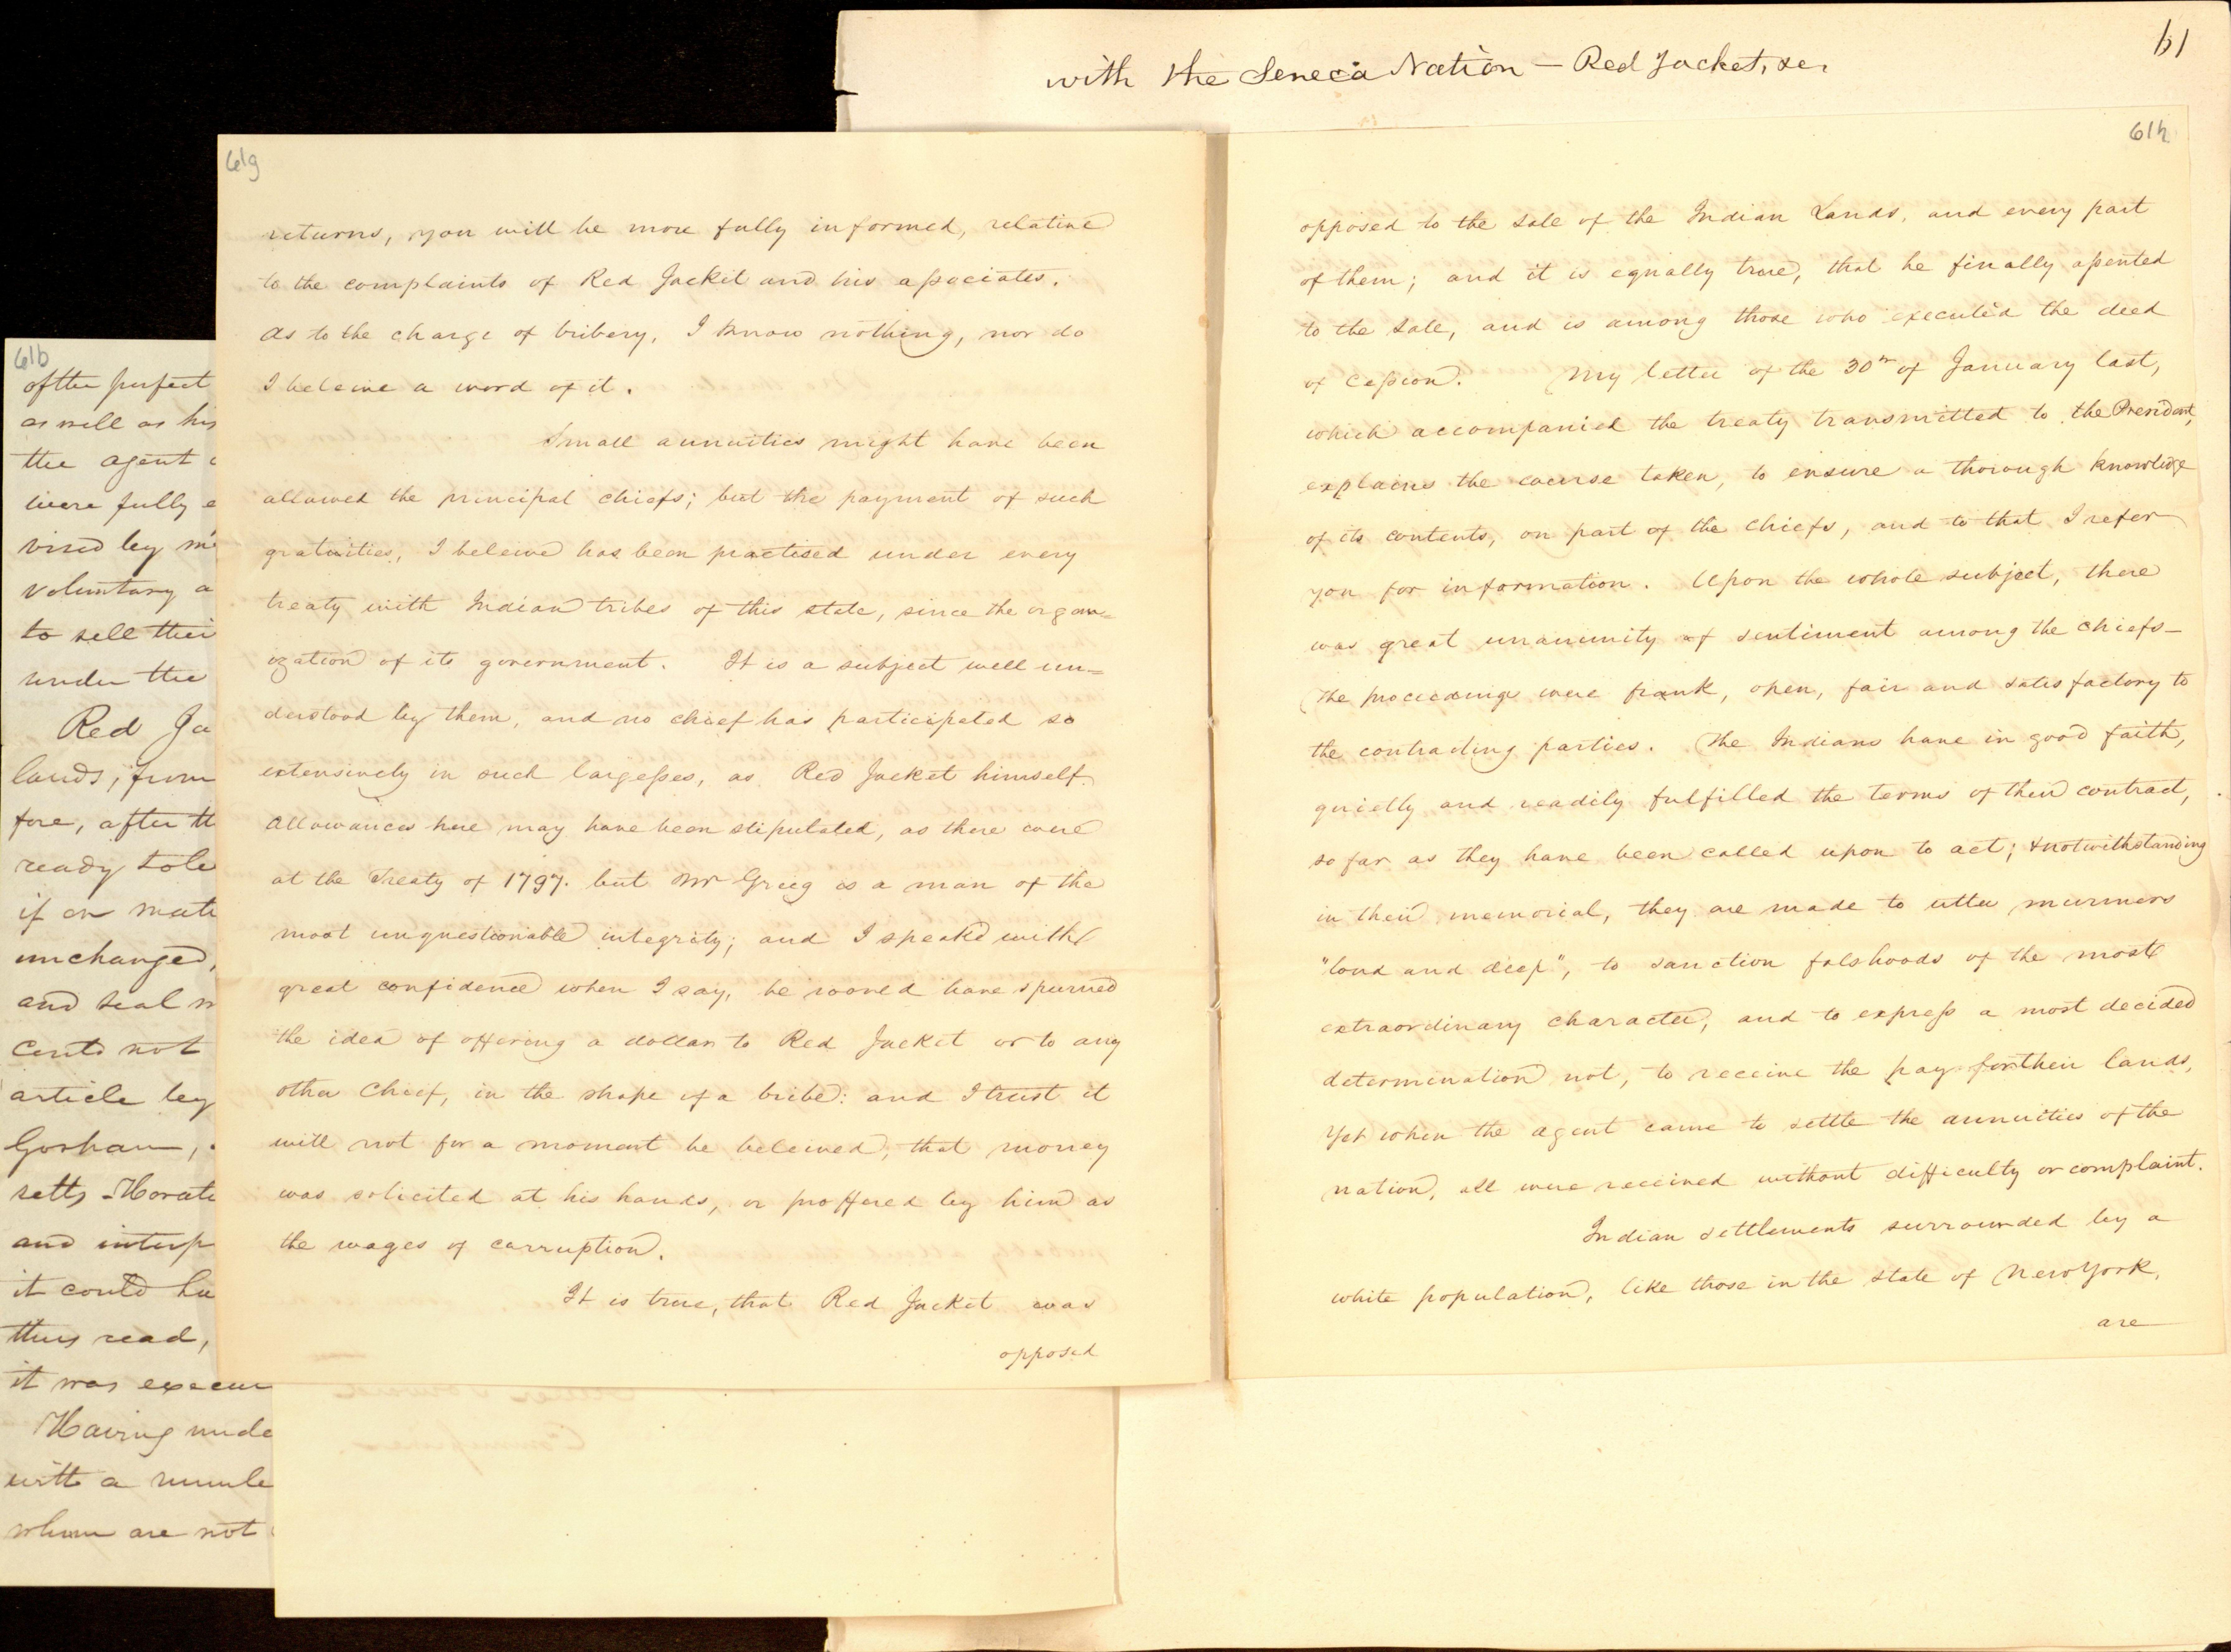 with the Seneca Nation — Red Jacket, &c.
61
61b
of the perfect
as well as his
the agent
were fully
vised by
voluntary a
to sell their
under the
Red Ja
lands, from
fore, after th
ready to
if on
unchanged,
and seal
Cents not
article by
Gorham,
setts - Horat
and interp
it could
thus read,
it was execu
Having unde
with a numbe
whom are not
61g
returns, you will be more fully informed, relative
to the complaints of Red Jacket and his associates.
As to the charge of bribery, I know nothing, nor do
I beleive a word of it.
Small annuities might have been
allowed the principal chiefs; but the payment of such
gratuities, I beleive has been practised under every
treaty with Indian tribes of this state, since the organ=
ization of its government. It is a subject well un=
derstood by them, and no chief has participated so
extensively in such largesses, as Red Jacket himself.
Allowances here may have been stipulated, as there were
at the Treaty of 1797. but Mr Greig is a man of the
most unquestionable integrity; and I speak with
great confidence when I say, he would have spurned
the idea of offering a dollar to Red Jacket or to any
other Chief, in the shape of a bribe: and I trust it
will not for a moment be beleived, that money
was solicited at his hands, or proffered by him as
the wages of corruption.
It is true, that Red Jacket was
opposed
61h
opposed to the sale of the Indian Lands, and every part
of them; and it is equally true, that he finally assented
to the sale, and is among those who executed the deed
of Cession. My letter of the 30th of January last,
which accompanied the treaty transmitted to the President,
explains the course taken, to ensure a thorough knowledge
of its contents, on part of the Chiefs, and to that I refer
you for information. Upon the whole subject, there
was great unanimity of sentiment among the chiefs—
The proceedings were frank, open, fair and satisfactory to
the contracting parties. The Indians have in good faith,
quietly and readily fulfilled the terms of their contract,
so far as they have been called upon to act; & notwithstanding
in their memorial, they are made to utter murmers
"loud and deep", to sanction falshoods of the most
extraordinary character, and to express a most decided
determination not, to receive the pay for their lands,
Yet when the agent came to settle the annuities of the
nation, all were received without difficulty or complaint.
Indian settlements surrounded by a
white population, like those in the state of New York,
are